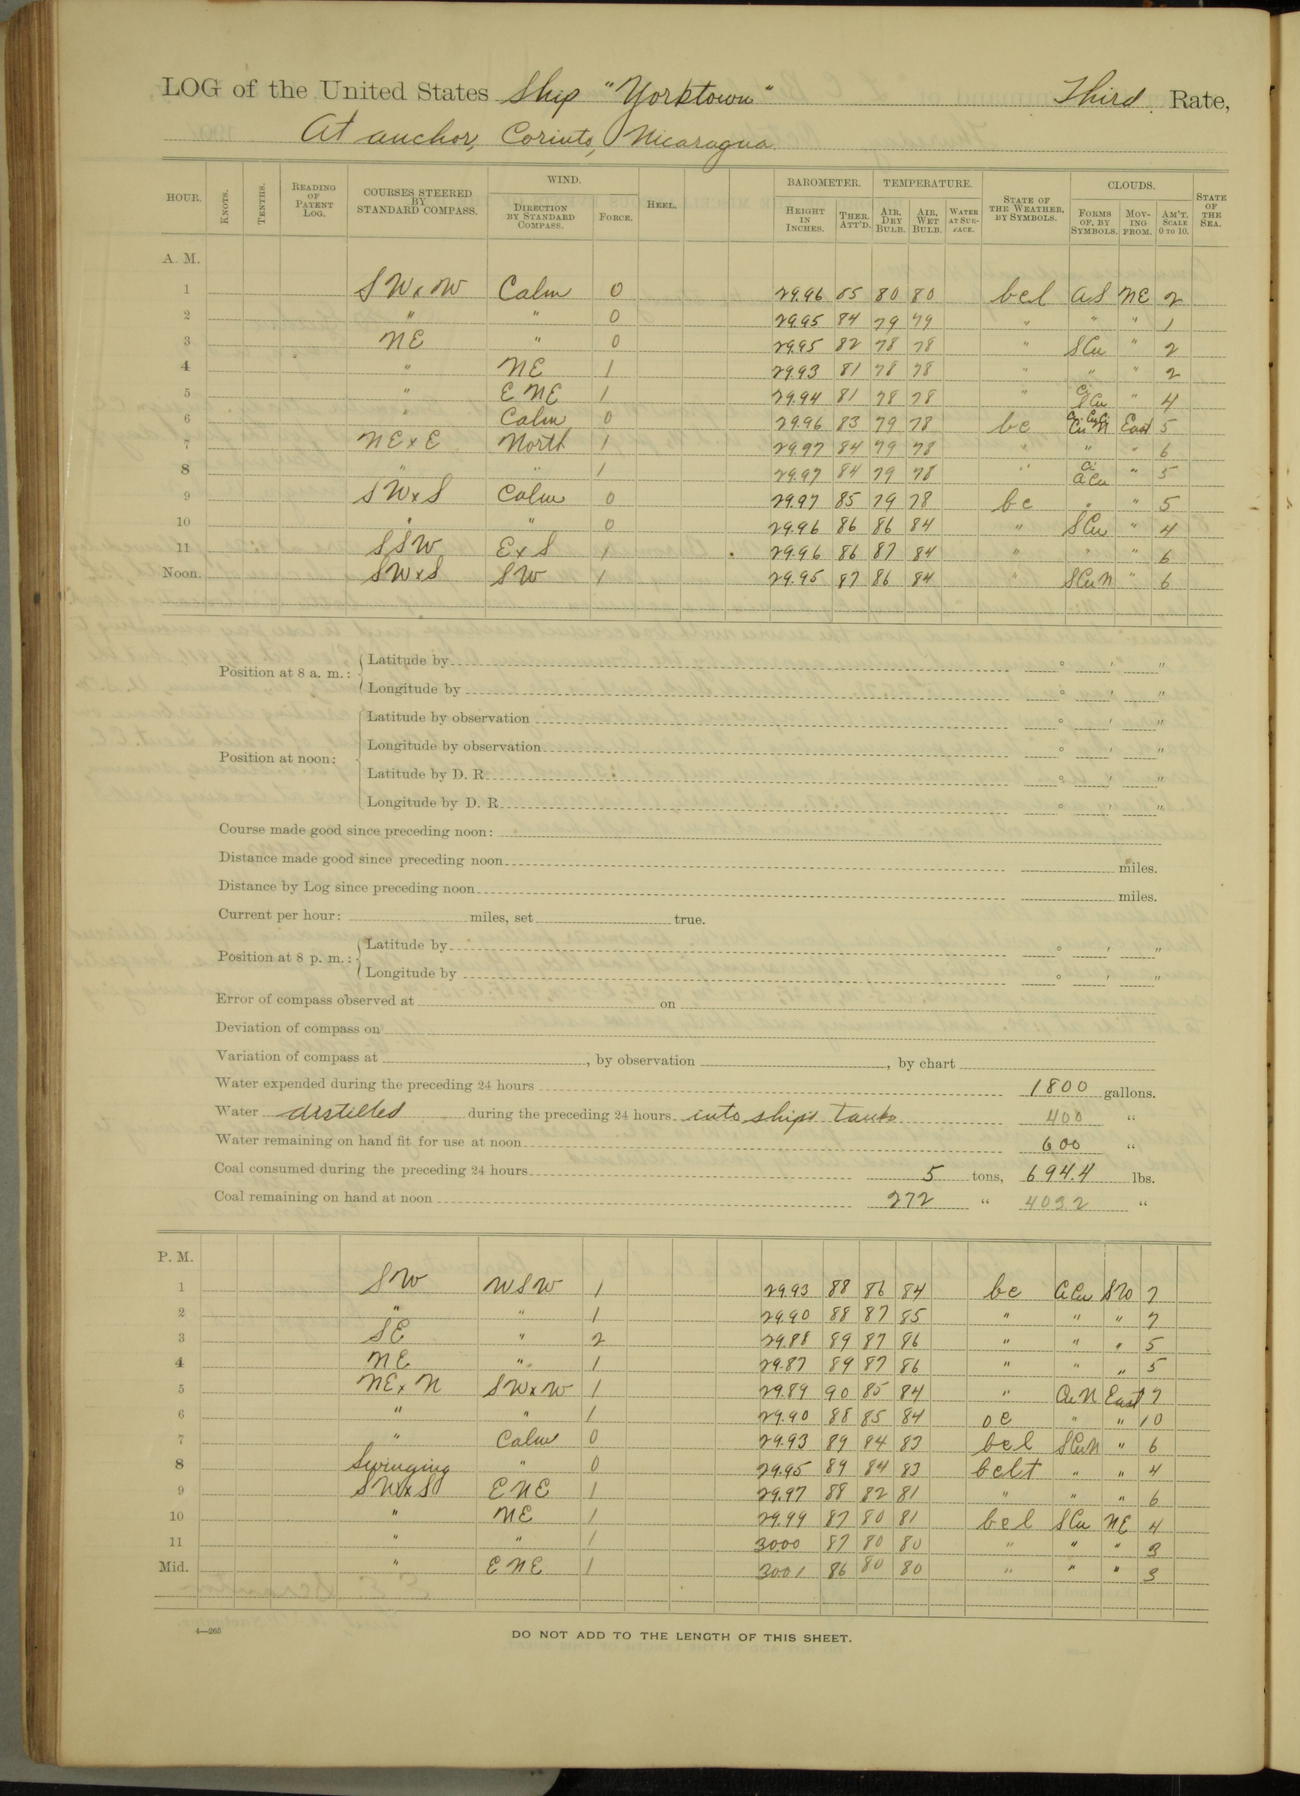 LOG of the United States Ship "Yorktown" Third Rate,
At anchor, Corinto, Nicaragua.
HOUR. KNOTS. TENTHS. READING OF PATENT LOG. COURSES STEERED BY STANDARD COMPASS. WIND. DIRECTION BY STANDARD COMPASS. FORCE. HEEL. BAROMETER. HEIGHT IN INCHES. THER. ATT'D. TEMPERATURE. AIR, DRY BULB. AIR, WET BULB. WATER AT SUR-FACE. STATE OF THE WEATHER, BY SYMBOLS. CLOUDS. FORMS OF, BY SYMBOLS. MOV-ING FROM. AM'T. SCALE 0 TO 10. STATE OF THE SEA.
A. M.
1 SWxW Calm 0 29.96 85 80 80 bcl AS NE 2
2 " " 0 29.95 84 79 79 " " " 1
3 NE " 0 29.95 82 78 78 " SCu " 2
4 " NE 1 29.93 81 78 78 " " " 2
5 " ENE 1 29.94 81 78 78 " Ci SCu " 4
6 " Calm 0 29.96 83 79 78 bc East 5
7 NExE North 1 29.97 84 79 78 " " " 6
8 " " 1 29.97 84 79 78 " Ci ACu " 5
9 SWxS Calm 0 29.97 85 79 78 bc " " 5
10 " " 0 29.96 86 86 84 " SCu " 4
11 SSW ExS 1 29.96 86 87 84 " " " 6
Noon. SWxS SW 1 29.95 87 86 84 " SCuN " 6
Position at 8 a. m.: Latitude by ° ′ ″
Longitude by ° ′ ″
Position at noon: Latitude by observation ° ′ ″
Longitude by observation ° ′ ″
Latitude by D. R. ° ′ ″
Longitude by D. R. ° ′ ″
Course made good since preceding noon:
Distance made good since preceding noon miles.
Distance by Log since preceding noon miles.
Current per hour: miles, set true.
Position at 8 p. m.: Latitude by ° ′ ″
Longitude by ° ′ ″
Error of compass observed at on
Deviation of compass on
Variation of compass at , by observation , by chart
Water expended during the preceding 24 hours 1800 gallons.
Water distilled during the preceding 24 hours into ship's tanks 400 "
Water remaining on hand fit for use at noon 600 "
Coal consumed during the preceding 24 hours 5 tons, 694.4 lbs.
Coal remaining on hand at noon 272 " 403.2 "
P. M.
1 SW WSW 1 29.93 88 86 84 bc ACu SW 7
2 " " 1 29.90 88 87 85 " " " 7
3 SE " 2 29.88 89 87 86 " " " 5
4 NE " 1 29.87 89 87 86 " " " 5
5 NExN SWxW 1 29.89 90 85 84 " CuN East 7
6 " " 1 29.90 88 85 84 oc " " 10
7 " Calm 0 29.93 89 84 83 bcl SCuN " 6
8 Swinging " 0 29.95 89 84 83 bclt " " 4
9 SWxS ENE 1 29.97 88 82 81 " " " 6
10 " NE 1 29.99 87 80 81 bcl SCu NE 4
11 " " 1 30.00 87 80 80 " " " 3
Mid. " ENE 1 30.01 86 80 80 " " " 3
4—265
DO NOT ADD TO THE LENGTH OF THIS SHEET.